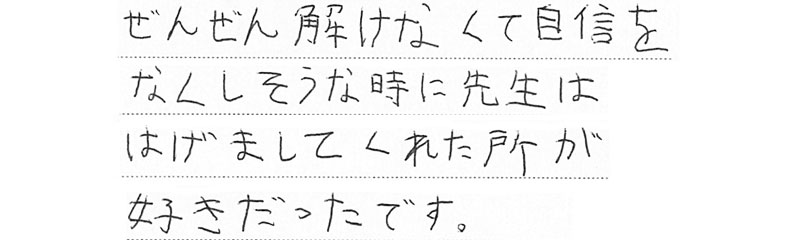 ぜんぜん解けなくて自信を
なくしそうな時に先生は
はげましてくれた所が
好きだったです。